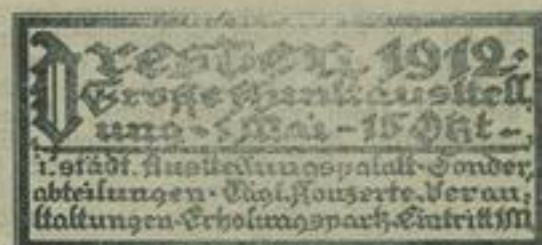 Dresden 1912:
Große Kunstausstell
ung - 1 Mai - 15 Okt -
i. städt. Ausstellungspalast · Sonder,
abteilungen · Tägl. Konzerte. Veran,
staltungen · Erholungspark · Eintritt 1M